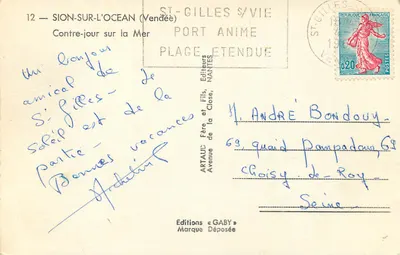 12 — SION-SUR-L'OCEAN (Vendée)
Contre-jour sur la Mer
ST-GILLES S/VIE
PORT ANIME
PLAGE ETENDUE
ST-GILLES
0,20
Un bonjour
amical de
St Gilles -
de
soleil est de la
partie -
Bonnes vacances
ARTAUD Père et Fils, Editeurs
Avenue de la Close, NANTES
M. ANDRÉ BONDOUY
69, quai Pompadour, 69
Choisy-le-Roy
Seine
Editions «GABY»
Marque Déposée